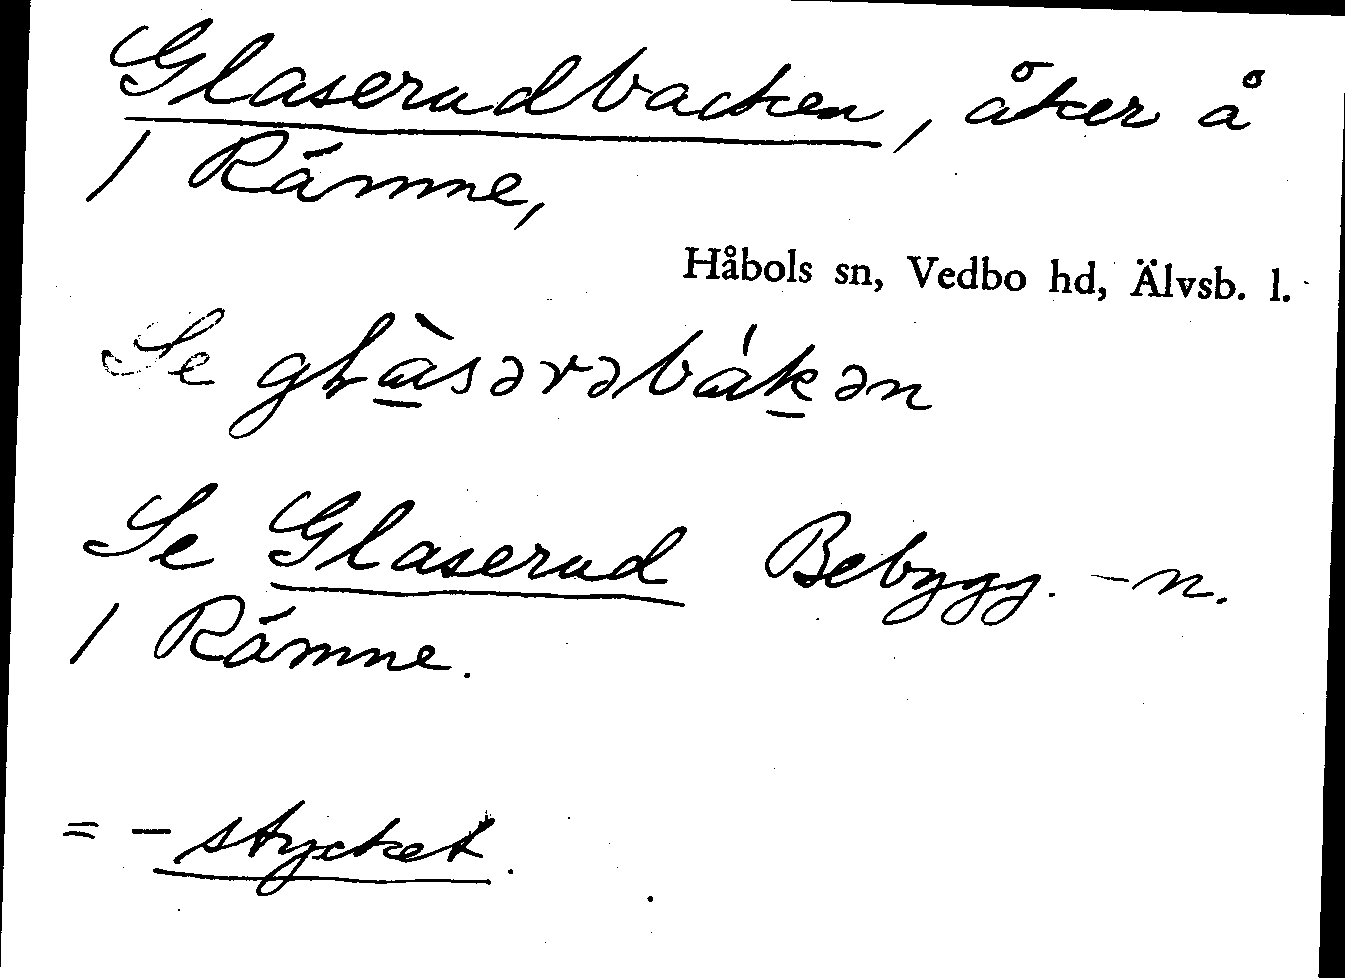 Glaserudbacken, åker å
/ Rämne,
Håbols sn, Vedbo hd, Älvsb. l.
Se
Se Glaserud Bebygg. -n.
/ Rämne.
= -stycket.